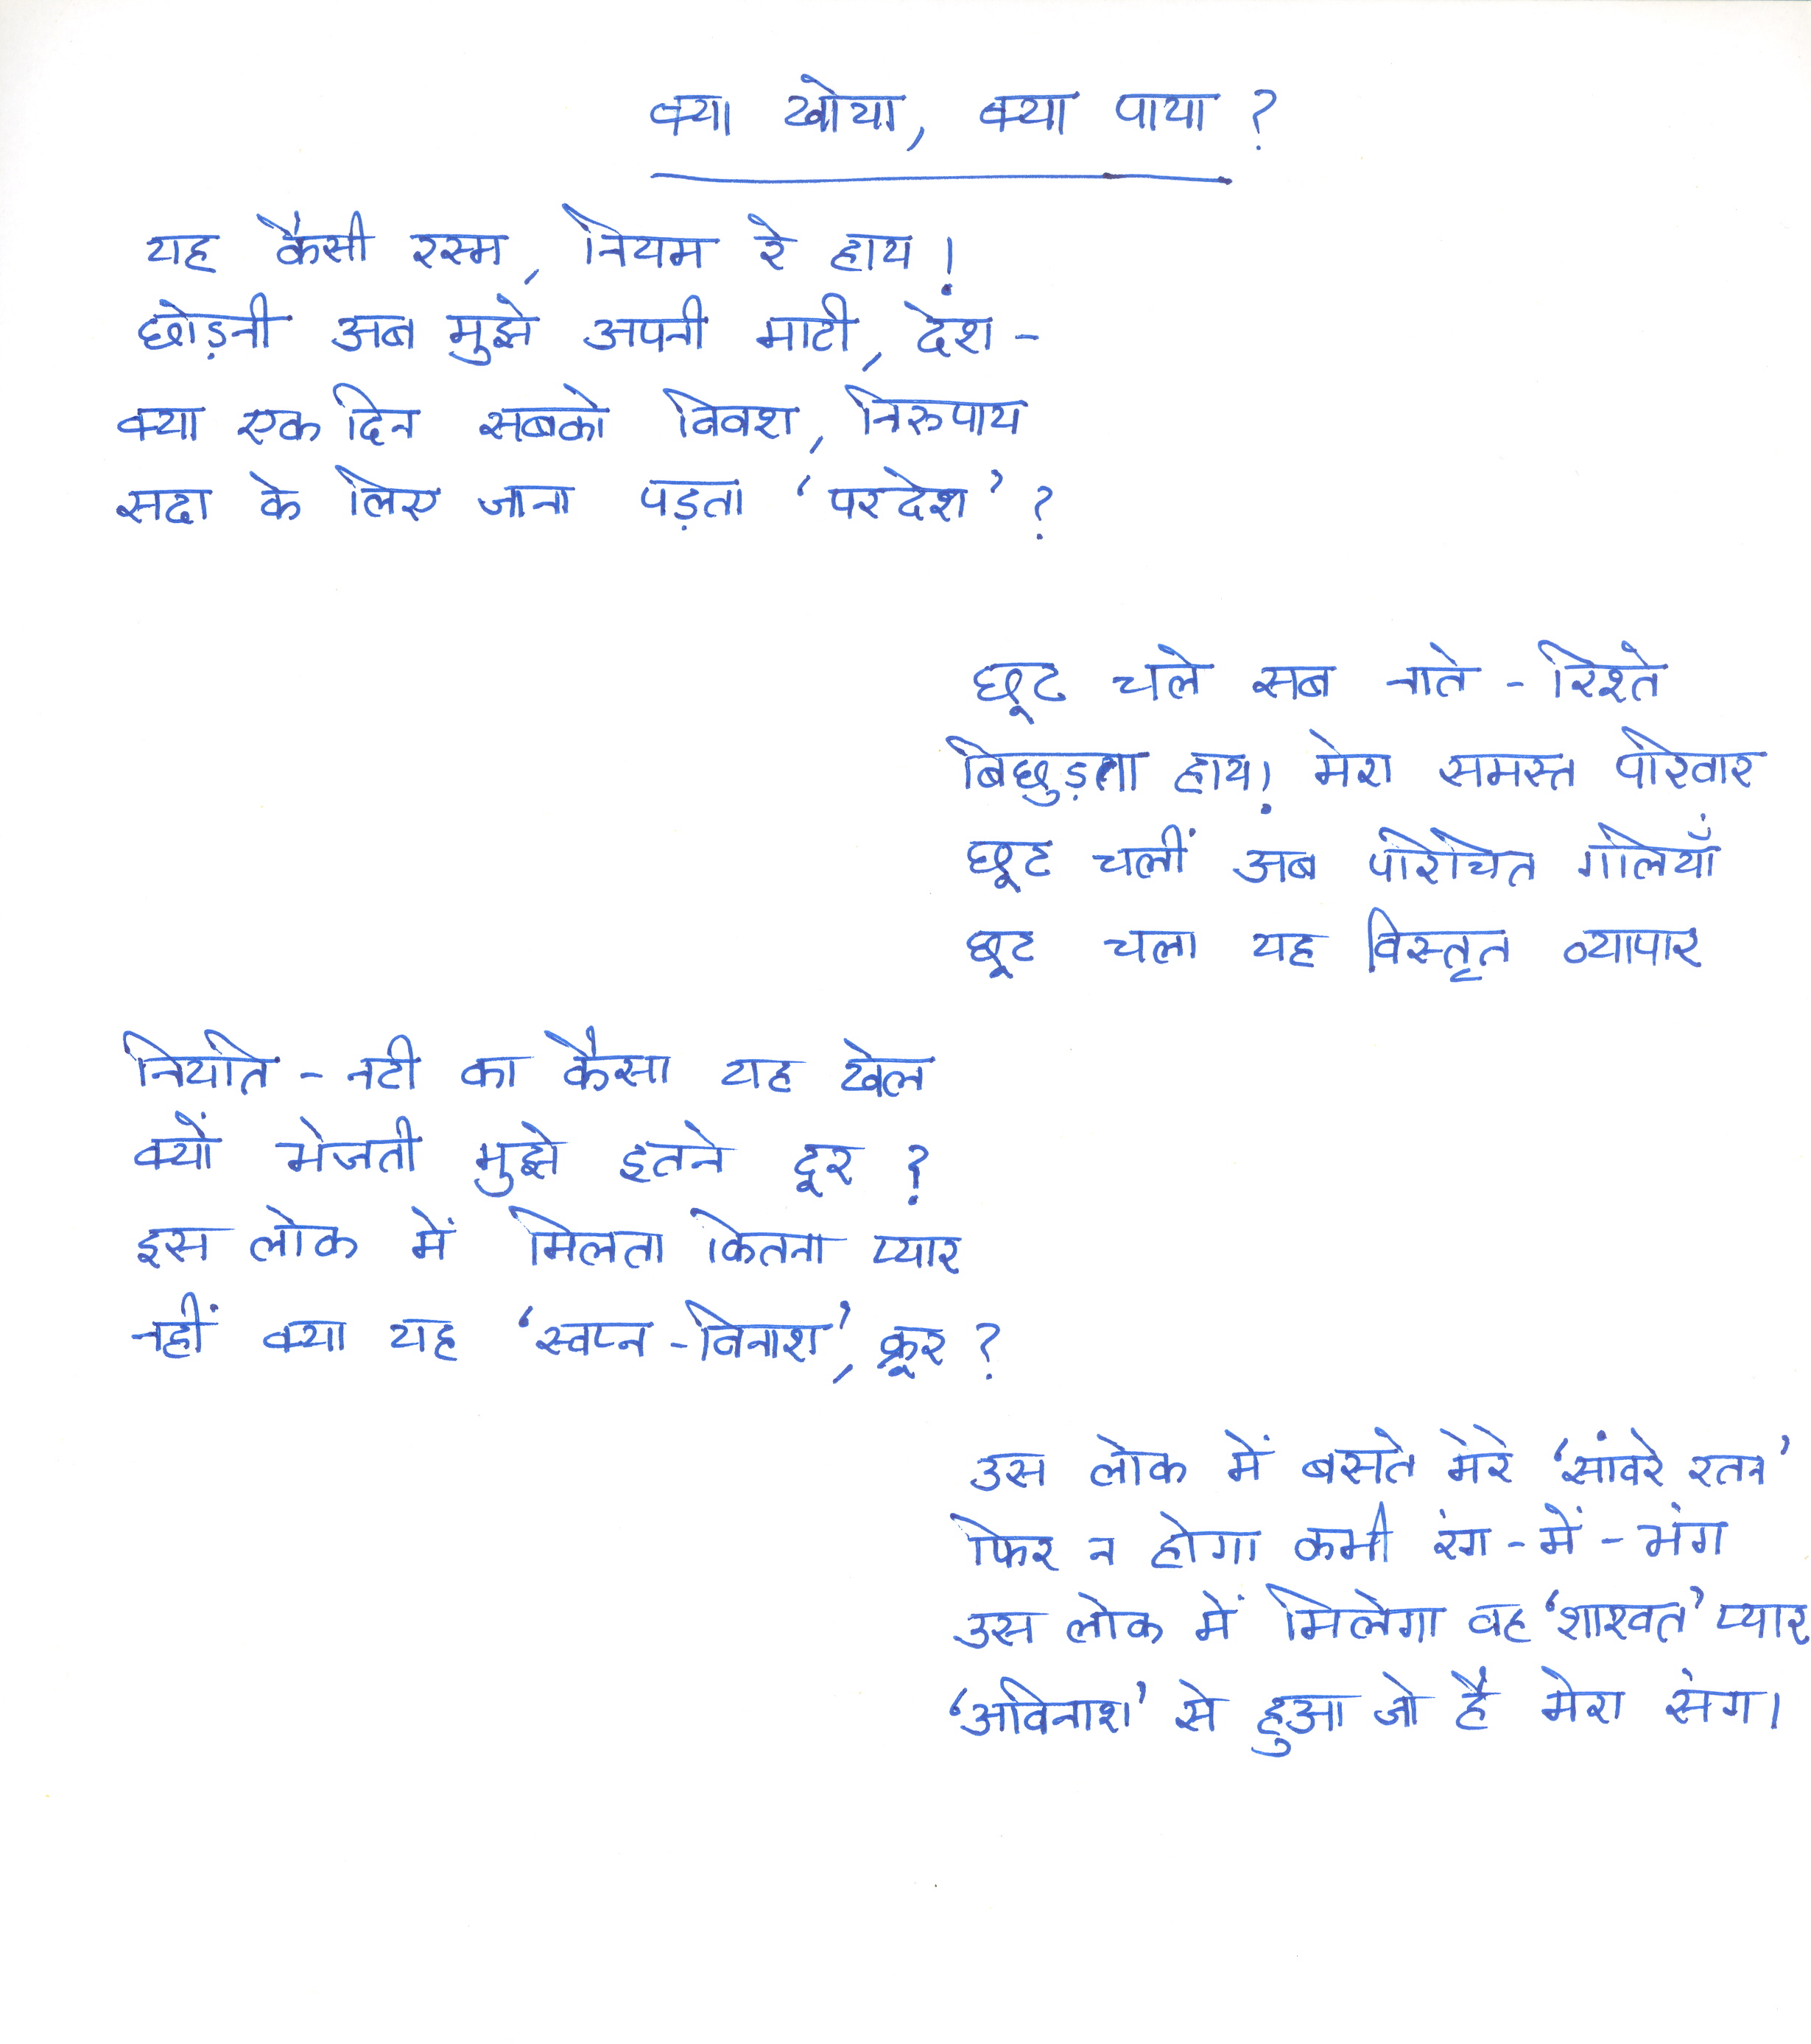 क्या खोया, क्या पाया ?
यह कैसी रस्म, नियम रे हाय !
छोड़नी अब मुझे अपनी माटी, देश -
क्या एक दिन सबको विवश, निरुपाय
सदा के लिए जाना पड़ता ‘परदेश’ ?
छूट चले सब नाते - रिश्ते
बिछुड़ता हाय! मेरा समस्त परिवार
छूट चलीं अब परिचित गलियाँ
छूट चला यह विस्तृत व्यापार
नियति - नटी का कैसा यह खेल
क्यों भेजती मुझे इतने दूर ?
इस लोक में मिलता कितना प्यार
नहीं क्या यह ‘स्वप्न - विनाश’, क्रूर ?
उस लोक में बसते मेरे ‘सांवरे रतन’
फिर न होगा कभी रंग - में - भंग
उस लोक में मिलेगा वह ‘शाश्वत’ प्यार
‘अविनाश’ से हुआ जो है मेरा संग।